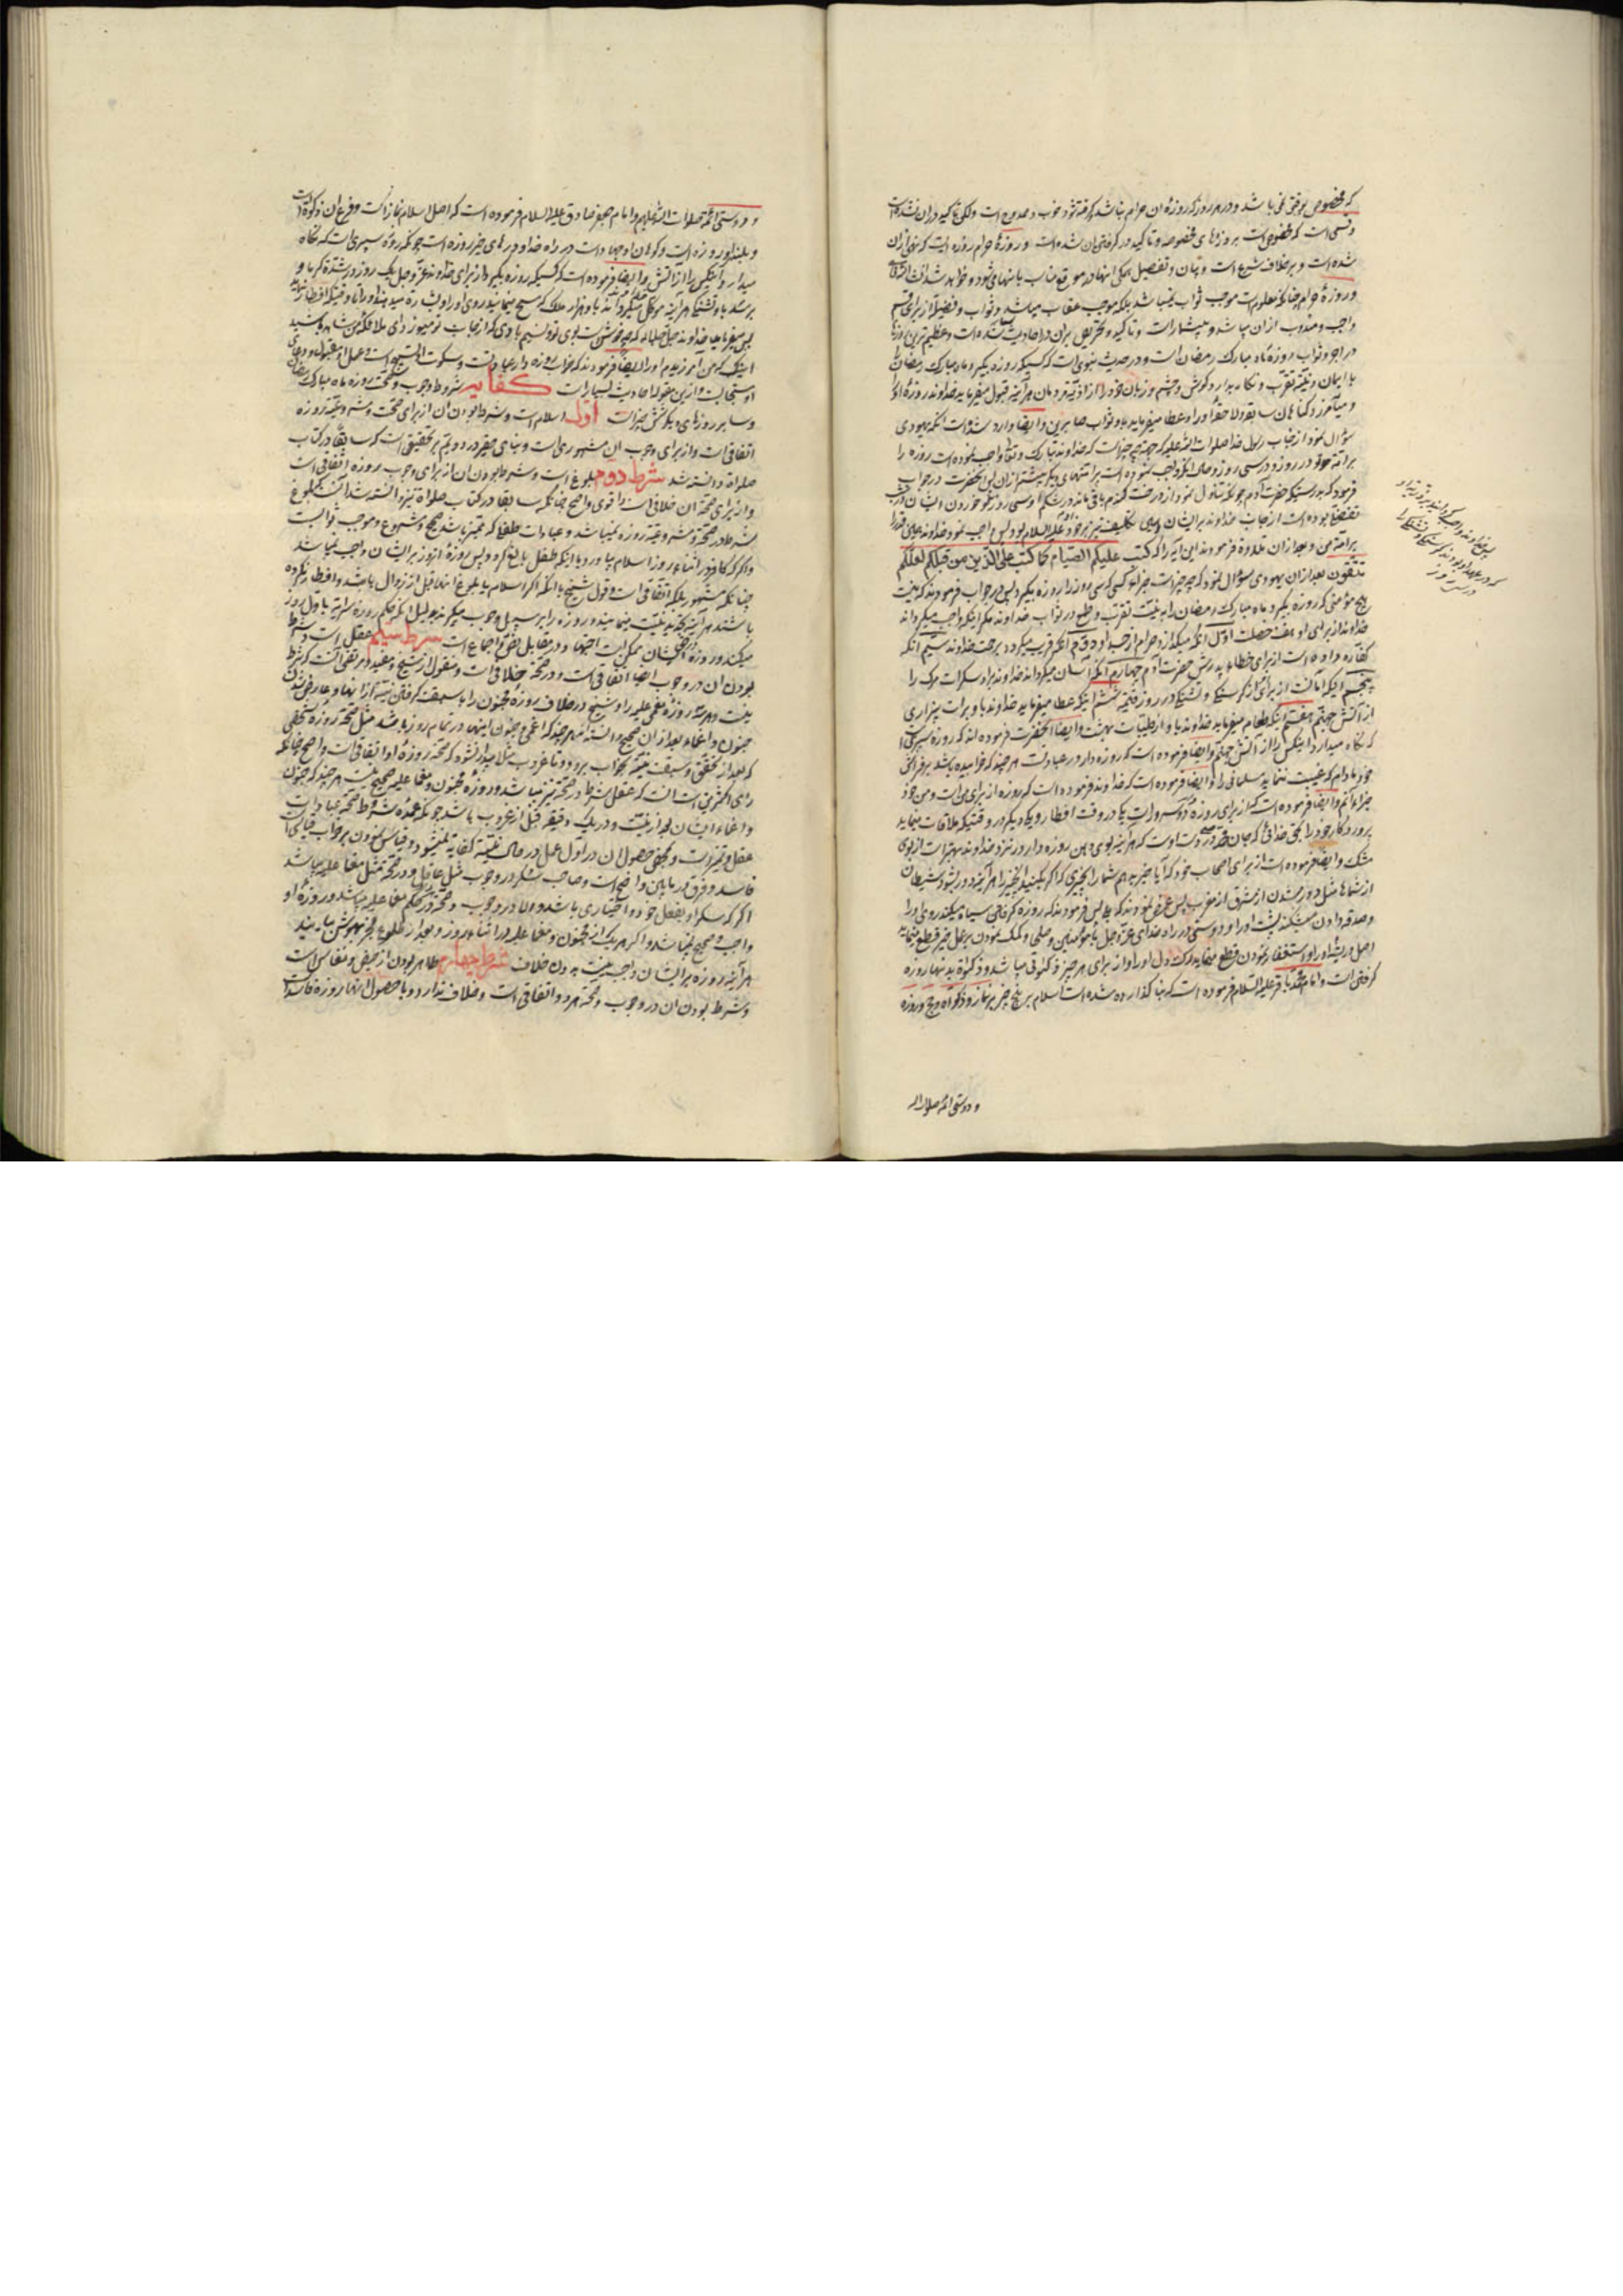 که مخصوص بوقتی نمی باشد و در هر روز که روزهٔ ان حرام نباشد گرفته شود خوب و ممدوح است ولکن تاکید در ان نشده است
و قسمی است که مخصوص است بروزهای مخصوصه و تاکید در گرفتن ان شده است و روزهٔ حرام روزه ایست که نهی از ان
شده است و برخلاف شرع است و بیان و تفصیل همکی اینها در موقع مناسب باینها می شود و خواهد شد انشاء الله تعالی
و روزهٔ حرام چنانکه معلوم است موجب ثواب نمیباشد بلکه موجب عقاب میباشد و ثواب و فضیلة از برای قسم
واجب و مندوب از ان میباشد و بیشمار است و تاکید و تحریص بران در احادیث شده است و عظیم ترین روزها
در اجر و ثواب روزهٔ ماه مبارک رمضان است و در حدیث نبوی است که کسیکه روزه بگیرد ماه مبارک رمضان را
با ایمان و نیّة تقرّب و نکاه بدارد کوش و چشم و زبان خود را از اذیّة مردمان هر آینه قبول میفرماید خداوند روزهٔ او را
و میآمرزد کناهان سابقه و لاحقهٔ او را و عطا میفرماید باو ثواب صابرین و ایضا وارد شده است انکه یهودی
سؤال نمود از جناب رسول خدا صلوات الله علیه که جهة چه چیز است که خداوند تبارک و تعالی واجب نموده است روزه را
بر امّة تو در روز و در سی روز و حال انکه واجب نموده است بر امتهای دیگر بیشتر از ان پس انحضرت در جواب
فرمود که بدرستیکه حضرت آدم چونکه تناول نمود از درخت کندم باقی ماند در شکم او سی روز و خوردن ایشان در شب
تفضلی بوده است از جانب خداوند بر ایشان و این تکلیف نیز بر خود آدم علیه السلام بود پس واجب نمود خداوند همین قدر را
بر امّة من و بعد از ان تلاوة فرمودند این آیه را که کتب علیکم الصیام کما کتب علی الذین من قبلکم لعلکم
تتقون بعد از ان یهودی سؤال نمود که چه چیز است جزاء کسی که سی روز را روزه بگیرد پس در جواب فرمودند که نیست
هیچ مؤمنی که روزه بگیرد ماه مبارک رمضان را به نیّت تقرّب و طمع در ثواب خداوند مکر اینکه واجب میکرداند
خداوند از برای او هفت خصلت اوّل انکه میکدازد حرام از جسد او دوّم انکه قریب میکردد برحمت خداوند سیّم انکه
کفّاره داده است از برای خطاء پدرش حضرت آدم چهارم انکه آسان میکرداند خداوند بر او سکرات مرک را
پنجم اینکه امانست از برای از کرسنکی و تشنکی در روز قیامة ششم اینکه عطا میفرماید خداوند باو برات بیزاری
از آتش جهنّم هفتم انکه طعام میفرماید خداوند باو از طیّبات بهشت و ایضا انحضرت فرموده اند که روزه سپری است
که نکاه میدارد اینکس را از آتش جهنّم و ایضا فرموده است که روزه دار در عبادتست هر چند که خوابیده باشد بر فراش
خود مادام که غیبت ننماید مسلمانی را و ایضا فرموده است که خداوند فرموده است که روزه از برای من است و من خود
جزاء انم و ایضا فرموده است که از برای روزه دار دو مسرّة است یکی در وقت افطار و یکی دیگر در وقتیکه ملاقات مینماید
پرورد کار خود را بحق خدائی که جان محمد در دست اوست که هر آینه بوی دهن روزه دار در نزد خداوند بهتر است از بوی
مشک و ایضا فرموده است از برای اصحاب خود که آیا خبر بدهم شما را بچیزی که اکر بکنید انچیز را هر آینه دور بشود شیطان
از شماها مثل دور شدن از مشرق از مغرب پس عرض نمودند که بلی پس فرمودند که روزه کرفتن سیاه میکند روی او را
و صدقه دادن میشکند پشت او را و دوستی در راه خدای عزّ و جل با مؤمنین و صلحا و کمک نمودن بر عمل خیر قطع مینماید
اصل و ریشهٔ او را و استغفار نمودن قطع مینماید رک دل او را و از برای هر چیز زکوتی میباشد و زکوة بدنها روزه
کرفتن است و امام محمد باقر علیه السلام فرموده است که بنا کذارده شده است اسلام بر پنج چیز بر نماز و زکواة و حج و روزه
و دوستی ائمه صلوات الله
و دوستی ائمّه صلوات الله علیهم و امام جعفر صادق علیه السلام فرموده است که اصل اسلام نماز است و فرع ان زکوة است
و بلندی او روزه است و کوهان او جهاد است در راه خدا و درهای خیر روزه است چونکه روزه سپری است که نکاه
میدارد اینکس را از آتش و ایضا فرموده است که کسیکه روزه بگیرد از برای خداوند عزّ و جل یک روز در شدّة کرما و
برسد باو تشنکی هر آینه موکّل میکرداند باو هزار ملک که مسح مینمایند روی او را و بشارة میدهند او را تا وقتیکه افطار نماید
پس میفرماید خداوند جلّ جلاله که چه خوش است بوی تو و نسیم باد تو ای ملائکهٔ من شاهد باشید
اینکه من آمرزیدم او را و ایضا فرمودند که خواب روزه دار عبادتست و سکوت او تسبیح است و عمل او مقبول و دعای
او مستجابست و از این مقوله احادیث بسیار است کفایه شروط وجوب و صحّت روزه ماه مبارک رمضان
و سایر روزهای دیگر شش چیز است اوّل اسلام است و شرط بودن ان از برای صحّت و مشروعیّة روزه
اتفاقی است و از برای وجوب ان مشهوری است و بنای حقیر در دویّم بر تحقیقی است که سابقا در کتاب
صلواة دانسته شد شرط دوم بلوغ است و شرط بودن ان از برای وجوب روزه اتّفاقی است
و از برای صحّة ان خلافی است و اقوی و اصح چنانکه سابقا در کتاب صلواة نیز دانسته شد آنست که بلوغ
شرط در صحّة و مشروعیّة روزه نمیباشد و عبادات طفلی که ممیّز باشد صحیح و مشروع و موجب ثوابست
و اکر که کافر در اثناء روز اسلام بیاورد یا اینکه طفل بالغ کردد پس روزهٔ انروز بر ایشان واجب نمیباشد
چنانکه مشهور بلکه اتّفاقی است و قول شیخ با انکه اکر اسلام یا بلوغ اینها قبل از زوال باشد و افطار نکرده
باشند هر آینه تجدید نیّت مینمایند و روزه را بر سبیل وجوب میکیرند بدلیل انکه حکم روزه سرایة باول روز
میکند و روزهٔ ایشان ممکن است اجتهاد در مقابل نصّ و اجماع است شرط سیّم عقل است و شرط
بودن ان در وجوب اجماعا اتّفاقی است و در صحّة خلافی است و منقول از شیخ و مفید و مرتضی آنست که شرط
نیست و هر سه روزهٔ مغمی علیه را و شیخ در خلاف روزه مجنون را با سبقت کرفتن نیّة از انها و عارض شدن
جنون و اغماء بعد از ان صحیح دانسته اند هر چند که اغماء و جنون اینها در تمام روز باشد مثل صحّة روزهٔ شخصی
که بعد از تحقّق و سبقت نیّة بخواب برود و تا غروب مثلا بیدار نشود که صحّة روزهٔ او اتفاقی است و اصح چنانکه
رای اکثرین است آنست که عقل شرط در صحّة نیز میباشد و روزهٔ مجنون و مغما علیه صحیح نیست هر چند که جنون
و اغماء ایشان بعد از نیّت و در یک دقیقه قبل از غروب باشد چونکه عمدهٔ شروط صحّة عبادات
عقل و تمیز است و محض حصول ان در اوّل عمل در حال نیّة کفایة نمیشود و قیاس نمودن بر خواب قیاس
فاسد و فرق در مابین واضح است و صاحب سکر در وجوب مثل عاقل و در صحّة مثل مغما علیه میباشد
اکر که سکر او بفعل خود و اختیاری باشد و الا در وجوب و صحّة در حکم مغما علیه میباشد و روزهٔ او
واجب و صحیح نمیباشد و اکر هر یک از مجنون و مغما علیه در اثناء روز و بعد از طلوع فجر بهوش بیایند
هر آینه روزه بر ایشان واجب نیست بدون خلاف شرط چهارم طاهر بودن از حیض و نفاس است
و شرط بودن ان در وجوب و صحّة هر دو اتّفاقی است و خلاف ندارد و با حصول اینها روزه فاسد است